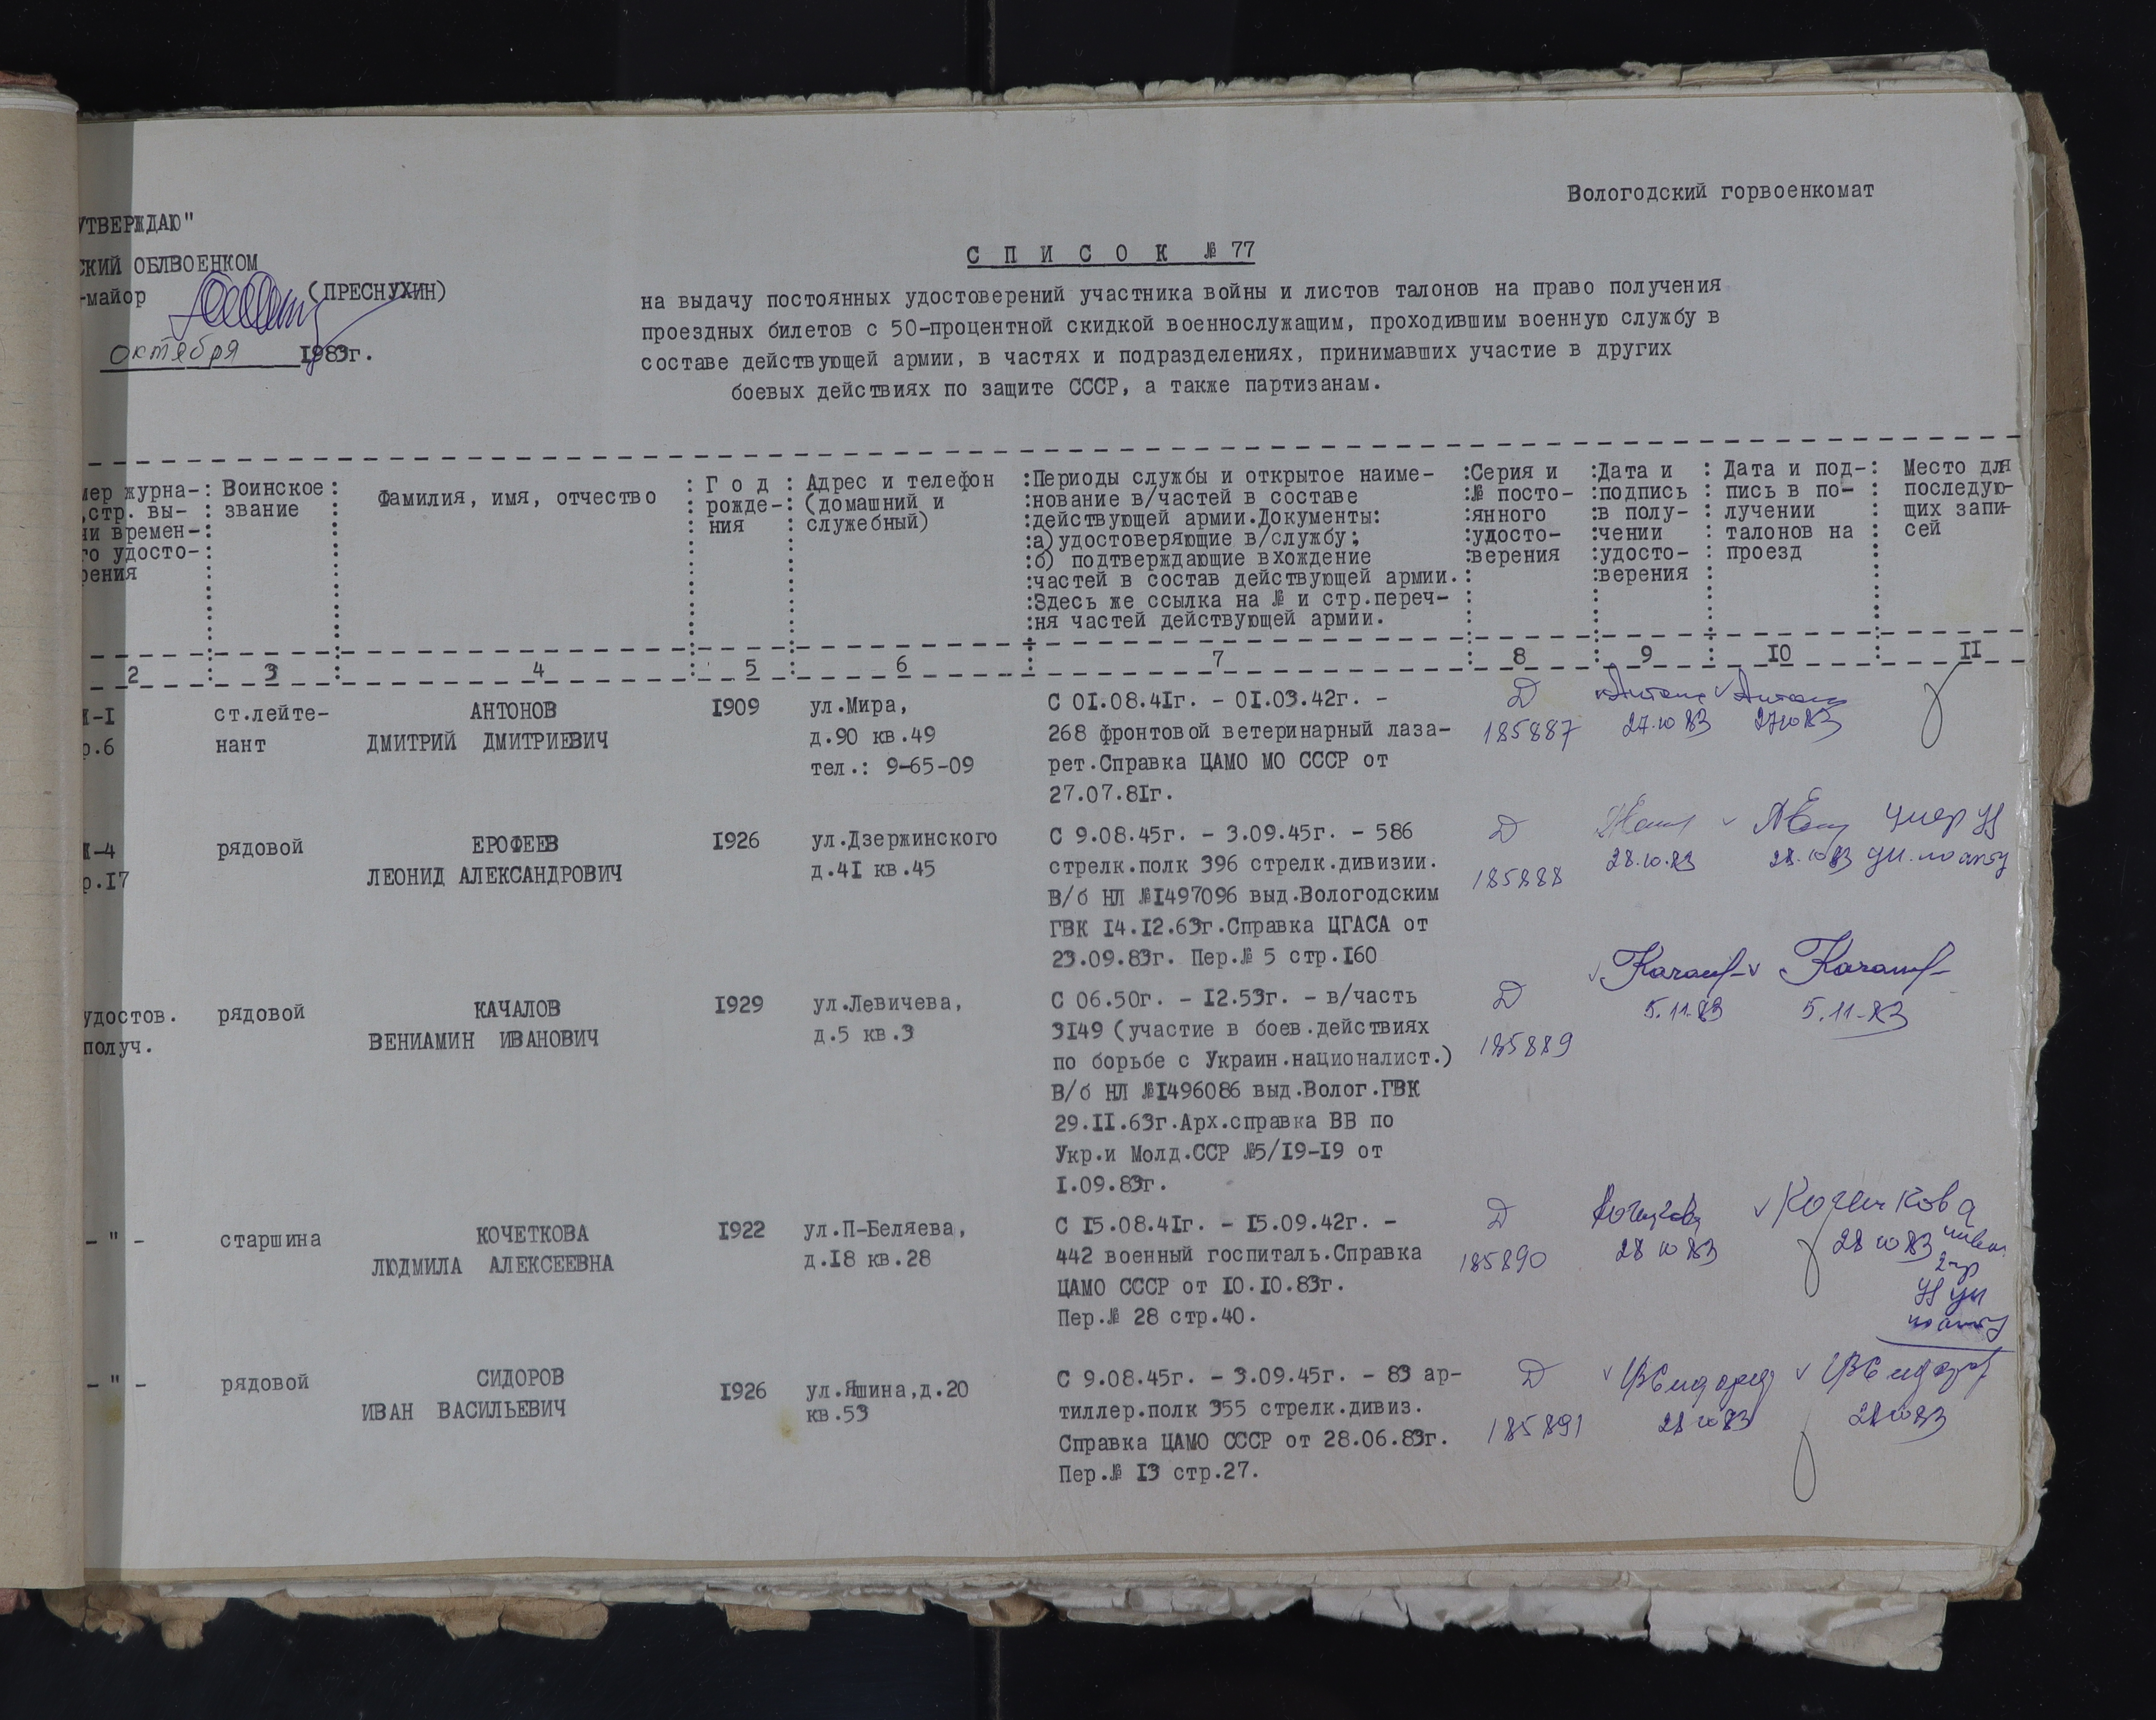 Вологодский горвоенкомат
УТВЕРЖДАЮ"
СКИЙ ОБЛВОЕНКОМ
-майор (ПРЕСНУХИН)
октября 1983г.
С П И С О К № 77
на выдачу постоянных удостоверений участника войны и листов талонов на право получения
проездных билетов с 50-процентной скидкой военнослужащим, проходившим военную службу в
составе действующей армии, в частях и подразделениях, принимавших участие в других
боевых действиях по защите СССР, а также партизанам.
мер журна-
,стр. вы-
чи времен-
го удосто-
рения
Воинское
звание
Фамилия, имя, отчество
Г о д
рожде-
ния
Адрес и телефон
(домашний и
служебный)
Периоды службы и открытое наиме-
нование в/частей в составе
действующей армии.Документы:
а)удостоверяющие в/службу;
б) подтверждающие вхождение
частей в состав действующей армии.
Здесь же ссылка на № и стр.переч-
ня частей действующей армии.
Серия и
№ посто-
янного
удосто-
верения
Дата и
подпись
в полу-
чении
удосто-
верения
Дата и под-
пись в по-
лучении
талонов на
проезд
Место для
последую-
щих запи-
сей
2 3 4 5 6 7 8 9 10 II
Ж-I
р.6
ст.лейте-
нант
АНТОНОВ
ДМИТРИЙ ДМИТРИЕВИЧ
I909
ул.Мира,
д.90 кв.49
тел.: 9-65-09
С 01.08.4Iг. - 01.03.42г. -
268 фронтовой ветеринарный лаза-
рет.Справка ЦАМО МО СССР от
27.07.8Iг.
Д
185887
27.10 83
27 10 83
Ж-4
р.I7
рядовой
ЕРОФЕЕВ
ЛЕОНИД АЛЕКСАНДРОВИЧ
I926
ул.Дзержинского
д.4I кв.45
С 9.08.45г. - 3.09.45г. - 586
стрелк.полк 396 стрелк.дивизии.
В/б НЛ №I497096 выд.Вологодским
ГВК I4.I2.63г.Справка ЦГАСА от
23.09.83г. Пер.№ 5 стр.I60
Д
185888
28.10.83
28.10 83
удостов.
получ.
рядовой
КАЧАЛОВ
ВЕНИАМИН ИВАНОВИЧ
I929
ул.Левичева,
д.5 кв.3
С 06.50г. - I2.53г. - в/часть
3I49 (участие в боев.действиях
по борьбе с Украин.националист.)
В/б НЛ №I496086 выд.Волог.ГВК
29.II.63г.Арх.справка ВВ по
Укр.и Молд.ССР №5/I9-I9 от
I.09.83г.
Д
185889
5.11.83
5.11-83
- " -
старшина
КОЧЕТКОВА
ЛЮДМИЛА АЛЕКСЕЕВНА
I922
ул.П-Беляева,
д.I8 кв.28
С I5.08.4Iг. - I5.09.42г. -
442 военный госпиталь.Справка
ЦАМО СССР от I0.I0.83г.
Пер.№ 28 стр.40.
Д
185890
28 10 83
28 10 83
- " -
рядовой
СИДОРОВ
ИВАН ВАСИЛЬЕВИЧ
I926
ул.Яшина,д.20
кв.53
С 9.08.45г. - 3.09.45г. - 83 ар-
тиллер.полк 355 стрелк.дивиз.
Справка ЦАМО СССР от 28.06.83г.
Пер.№ I3 стр.27.
Д
185891
28 10 83
28 10 83